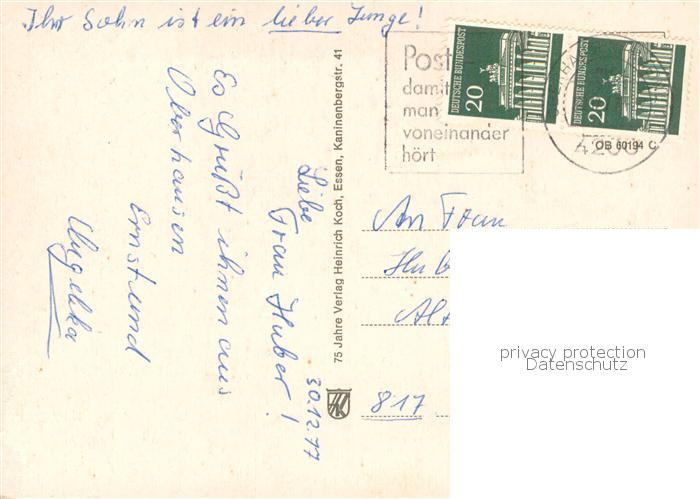 Ihr Sohn ist ein lieber Junge!
Liebe
Frau Huber!
Es Grüßt ihnen aus
Oberhausen
Ernst und
Angelika
30.12.77
75 Jahre Verlag Heinrich Koch, Essen, Kaninenbergstr. 41
HK
Post
damit
man
voneinander
hört
DEUTSCHE BUNDESPOST
20
DEUTSCHE BUNDESPOST
20
4200
OB 60194 C
An Frau
Hub
Alt
817
privacy protection
Datenschutz